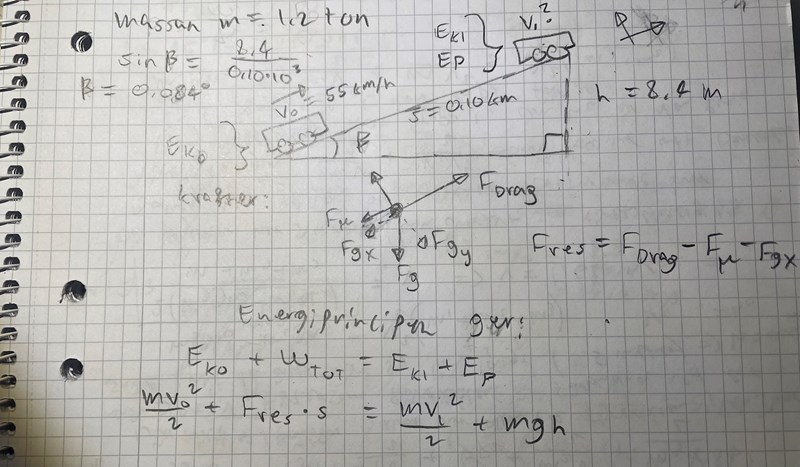 massan m = 1.2 ton
sin β = 8.4 / 0.10·10³
β = 0.084°
E_K1
E_P
V₁?
V₀ = 55 km/h
s = 0.10 km
h = 8.4 m
E_K0
β
krafter:
F_Drag
F_μ
F_gx
F_gy
F_g
F_res = F_Drag - F_μ - F_gx
Energiprincipen ger:
E_K0 + W_TOT = E_K1 + E_P
mv₀²/2 + F_res · s = mv₁²/2 + mgh